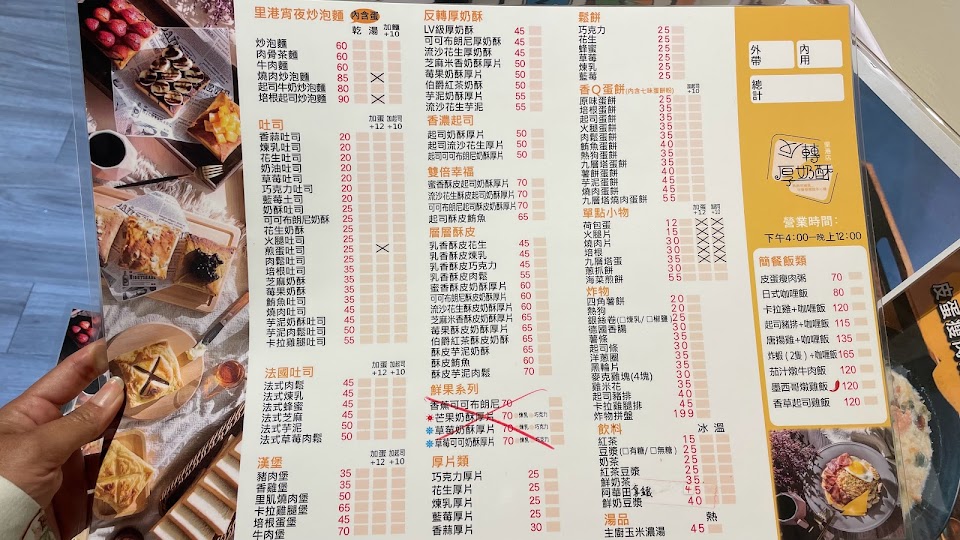 里港宵夜炒泡麵 內含蛋
乾 湯 加麵+10
炒泡麵 60
肉骨茶麵 60
牛肉麵 60
燒肉炒泡麵 85
起司牛奶炒泡麵 85
培根起司炒泡麵 90
吐司
加蛋+12 加起司+10
香蒜吐司 20
煉乳吐司 20
花生吐司 20
奶油吐司 20
草莓吐司 20
巧克力吐司 20
藍莓土司 20
奶酥吐司 25
可可布朗尼奶酥 25
花生奶酥 25
火腿吐司 25
煎蛋吐司 25
肉鬆吐司 35
培根吐司 35
芝麻奶酥 35
莓果奶酥 35
鮪魚吐司 35
燒肉吐司 45
芋泥奶酥吐司 50
芋泥肉鬆吐司 50
卡拉雞腿吐司 55
法國吐司
加蛋+12 加起司+10
法式肉鬆 45
法式煉乳 45
法式蜂蜜 45
法式芝麻 45
法式芋泥 45
法式草莓肉鬆 50
漢堡
加蛋+12 加起司+10
豬肉堡 35
香雞堡 35
里肌燒肉堡 50
卡拉雞腿堡 65
培根蛋堡 45
牛肉堡 70
反轉厚奶酥
LV級厚奶酥 45
可可布朗尼厚奶酥 45
流沙花生厚奶酥 45
芝麻米香奶酥厚片 50
莓果奶酥厚片 50
伯爵紅茶奶酥 50
芋泥奶酥厚片 55
流沙花生芋泥 55
香濃起司
起司奶酥厚片 50
起司流沙花生厚片 50
起司可可布朗尼奶酥厚片 50
雙倍幸福
蜜香酥皮起司奶酥厚片 70
流沙花生酥皮起司奶酥厚片 70
可可布朗尼起司奶酥厚片 70
起司酥皮鮪魚 65
層層酥皮
乳香酥皮花生 45
乳香酥皮煉乳 45
乳香酥皮巧克力 45
乳香酥皮肉鬆 55
蜜香酥皮奶酥厚片 60
可可布朗尼酥皮奶酥厚片 60
流沙花生酥皮奶酥厚片 60
芝麻米香酥皮奶酥厚片 65
莓果酥皮奶酥厚片 65
伯爵紅茶酥皮奶酥 65
酥皮芋泥奶酥 65
酥皮鮪魚 60
酥皮芋泥肉鬆 70
鮮果系列
香蕉可可布朗尼 70
芒果奶酥厚片 70 煉乳 巧克力
草莓奶酥厚片 70 煉乳 巧克力
草莓可可奶酥厚片 70 煉乳 巧克力
厚片類
巧克力厚片 25
花生厚片 25
煉乳厚片 25
藍莓厚片 25
香蒜厚片 30
鬆餅
巧克力 25
花生 25
蜂蜜 25
草莓 25
煉乳 25
藍莓 25
香Q蛋餅(內含七味蛋餅粉)
加起司+10
原味蛋餅 25
培根蛋餅 35
起司蛋餅 35
火腿蛋餅 35
肉鬆蛋餅 35
鮪魚蛋餅 40
熱狗蛋餅 35
九層塔蛋餅 35
薯餅蛋餅 40
芋泥蛋餅 45
燒肉蛋餅 45
九層塔燒肉蛋餅 55
單點小物
加蛋+12 加起司+10
荷包蛋 12
火腿片 15
燒肉片 30
培根 30
九層塔蛋 30
蔥抓餅 30
海菜煎餅 55
炸物
四角薯餅 20
熱狗 20
銀絲卷(□煉乳/□椒鹽) 25
德國香腸 30
薯條 35
起司條 30
洋蔥圈 30
黑輪片 30
麥克雞塊(4塊) 30
雞米花 35
起司豬排 40
卡拉雞腿排 45
炸物拼盤 199
飲料
冰 溫
紅茶 15
豆漿(□有糖/□無糖) 25
奶茶 25
紅茶豆漿 25
鮮奶茶 35
阿華田拿鐵 45
鮮奶豆漿 40
湯品
熱
主廚玉米濃湯 45
外帶
內用
總計
反轉厚奶酥
營業時間:
下午4:00—晚上12:00
簡餐飯類
皮蛋瘦肉粥 70
日式咖哩飯 80
卡拉雞+咖哩飯 120
起司豬排+咖哩飯 115
唐揚雞+咖哩飯 135
炸蝦(2隻)+咖哩飯 165
茄汁燉牛肉飯 120
墨西哥燉雞飯 120
香草起司雞飯 120
皮蛋瘦肉